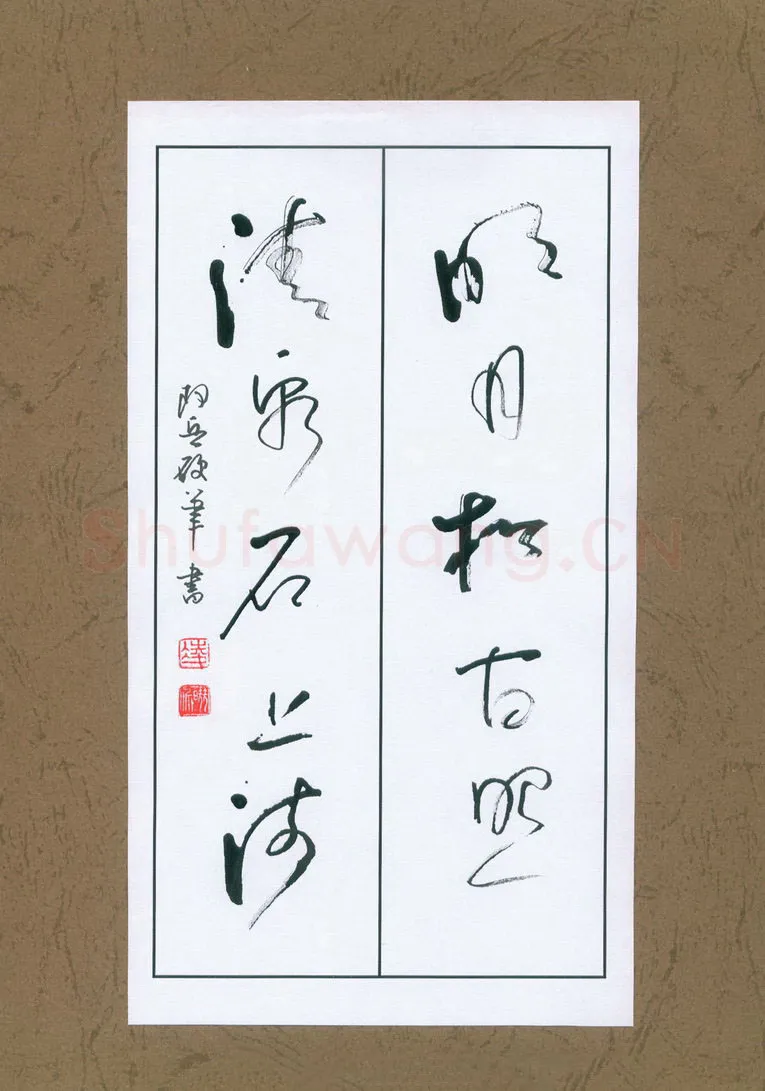 明月松間照
清泉石上流
硬筆書
Shufawang.CN